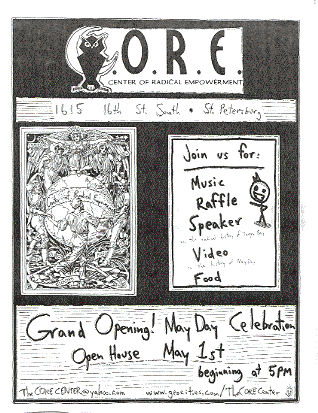 C.O.R.E.
CENTER OF RADICAL EMPOWERMENT
1615 16th St. South • St. Petersburg
Join us for:
Music
Raffle
Speaker
on the radical history of Tampa Bay
Video
on the history of May Day
Food
Grand Opening! May Day Celebration
Open House May 1st
beginning at 5PM
TheCORECENTER@yahoo.com www.geocities.com/TheCORECenter